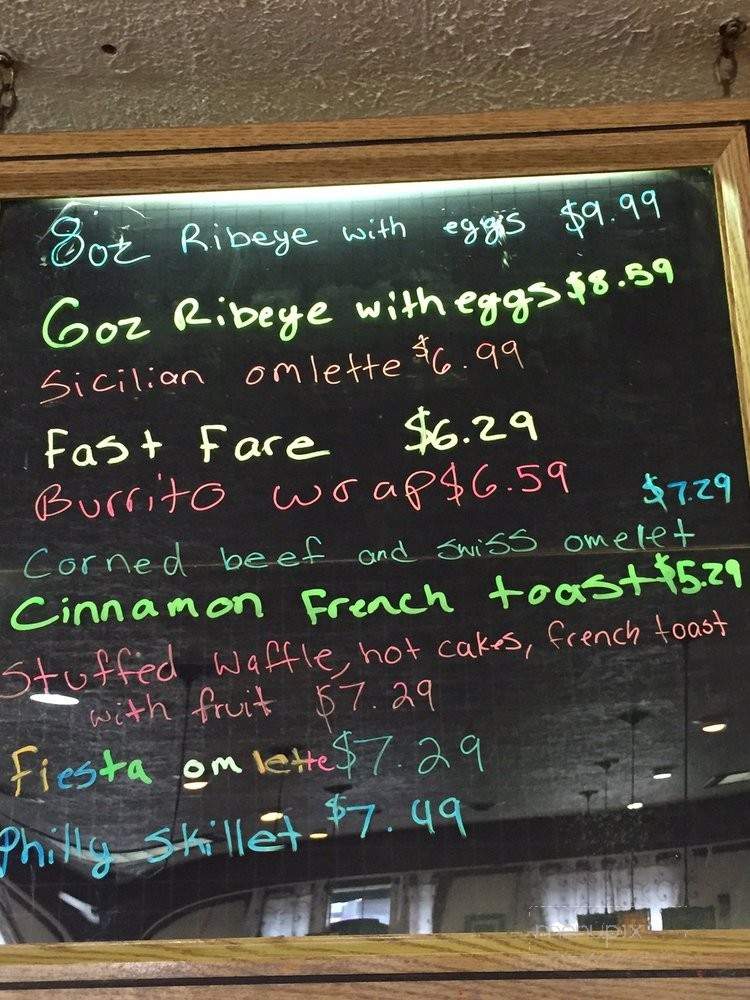 8oz Ribeye with eggs $9.99
6oz Ribeye with eggs $8.59
Sicilian omlette $6.99
Fast Fare $6.29
Burrito wrap $6.59
$7.29
Corned beef and swiss omelet
Cinnamon French toast $5.29
Stuffed Waffle, hot cakes, french toast
with fruit $7.29
Fiesta omlette $7.29
Philly Skillet - $7.49
menupix